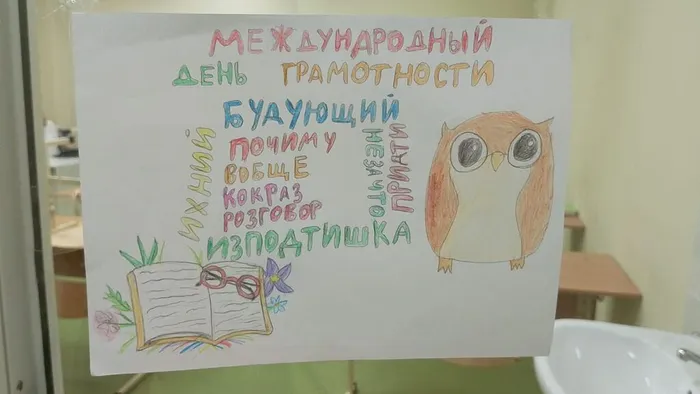 МЕЖДУНАРОДНЫЙ
ДЕНЬ ГРАМОТНОСТИ
БУДУЮЩИЙ
ИХНИЙ
ПОЧИМУ
ВОБЩЕ
КОКРАЗ
РОЗГОВОР
НЕЗАЧТО
ПРИДТИ
ИЗПОДТИШКА